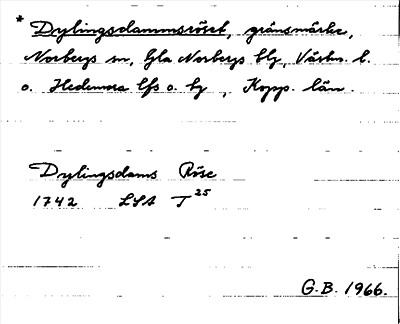 * Dylingsdammsröset, gränsmärke,
Norbergs sn, Gla Norbergs blg, Västm. l.
o. Hedemora lfs o. hg, Kopp. län.
Dylingsdams Röse
1742 LSA T 25
G.B. 1966.